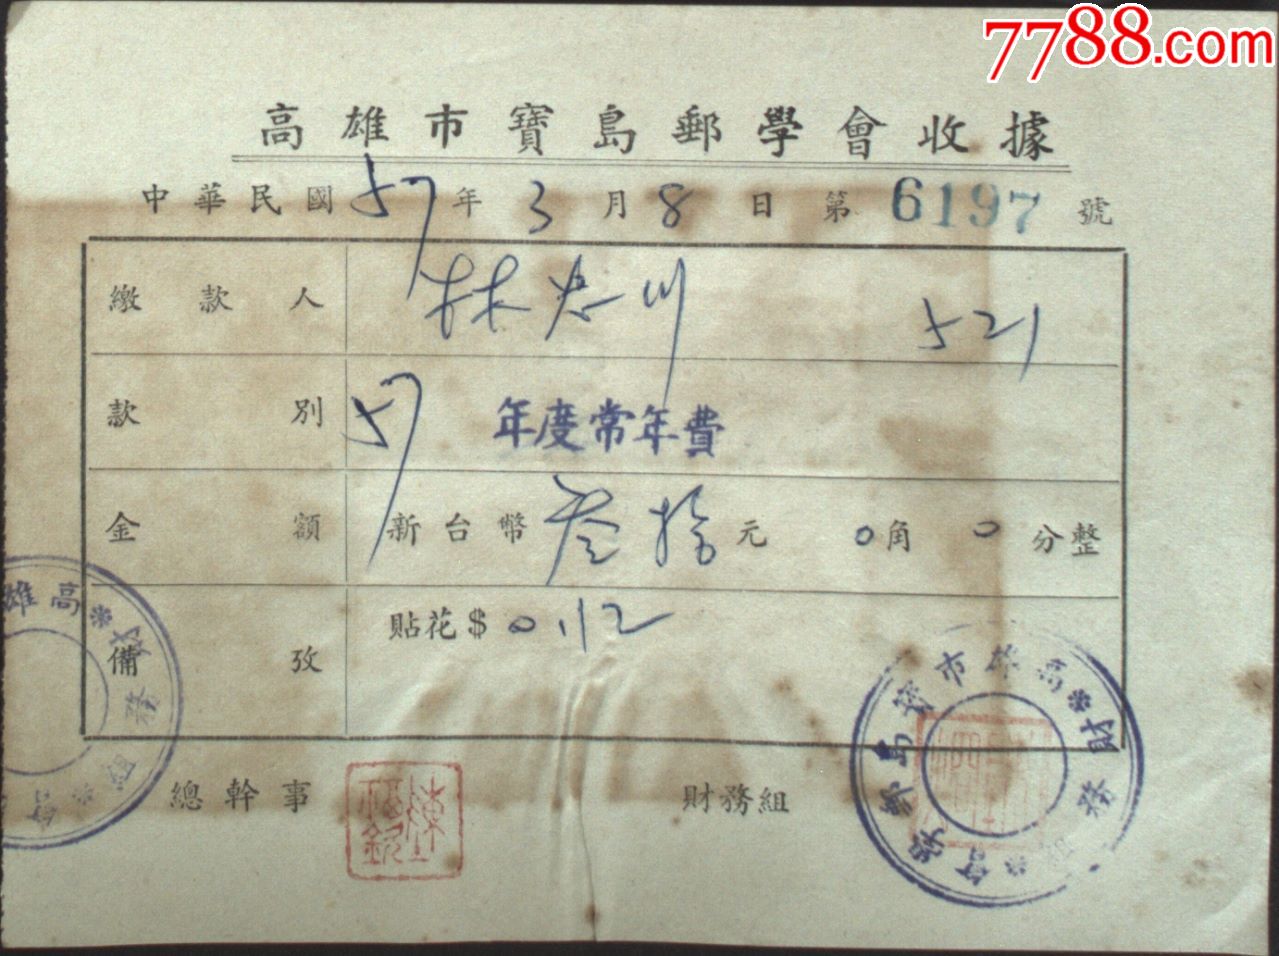 7788.com
高雄市寶島郵學會收據
中華民國57年3月8日 第6197號
繳款人 林忠川 521
款別 57年度常年費
金額 新台幣叁拾元0角0分整
備攷 貼花$0.12
總幹事 財務組
高雄市寶島郵學會 財務組
高雄 財務組